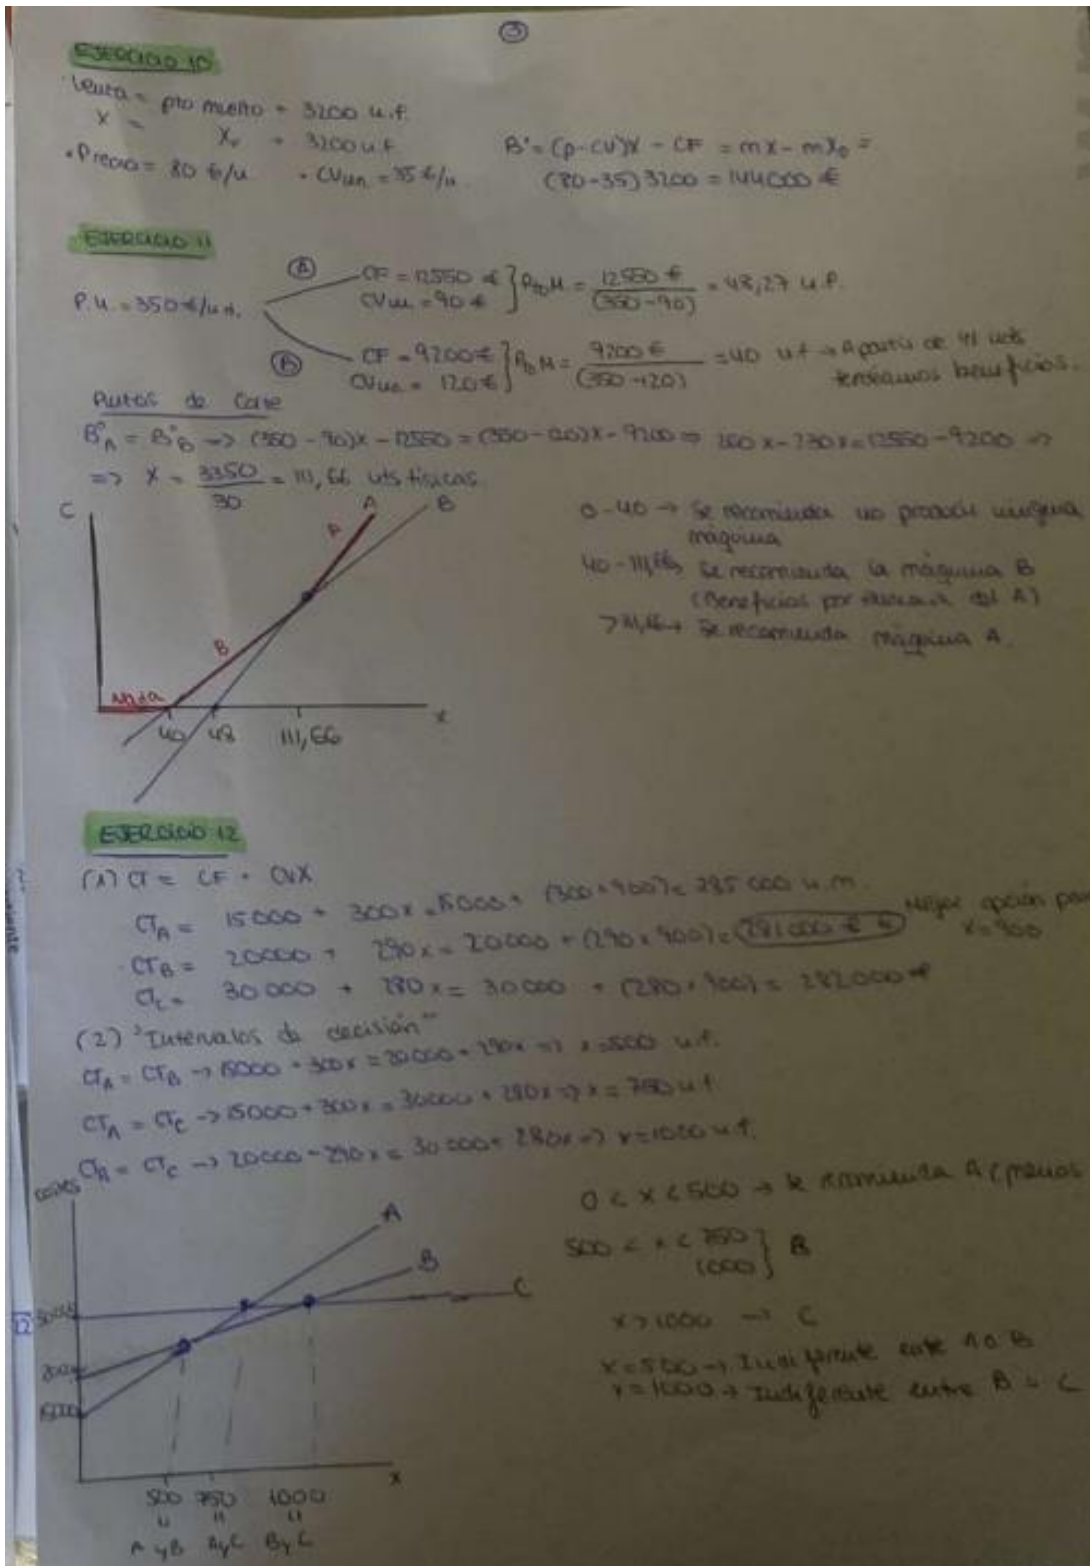 3
EJERCICIO 10
Venta = pto muerto + 3200 u.f.
X = X₀ + 3200 u.f
• Precio = 80 €/u • CVun = 35 €/u.
Bº = (p-cv)X - CF = mX - mX₀ =
(80-35)3200 = 144000 €
EJERCICIO 11
P.u. = 350 €/un.
A
CF = 12550 €
CVun = 90 €
} Pto M = 12550 € / (350-90) = 48,27 u.f.
B
CF = 9200 €
CVun = 120 €
} Pto M = 9200 € / (350-120) = 40 u.f → A partir de 41 uts
tendríamos beneficios.
Puntos de Corte
BºA = BºB => (350-90)x - 12550 = (350-120)x - 9200 => 260x - 230x = 12550 - 9200 =>
=> x = 3350 / 30 = 111,66 uts físicas.
C
A
B
A
B
Nada
40 48 111,66
x
0-40 → Se recomienda no producir ninguna
máquina
40-111,66 → Se recomienda la máquina B
(Beneficios por del A)
>111,66 → Se recomienda máquina A.
EJERCICIO 12
(1) CT = CF + CVX
CTA = 15000 + 300x = 15000 + (300×900) = 285000 u.m.
CTB = 20000 + 290x = 20000 + (290×900) = 281000 €
Mejor opción para
x=900
CTC = 30000 + 280x = 30000 + (280×900) = 282000
(2) "Intervalos de decisión"
CTA = CTB → 15000 + 300x = 20000 + 290x => x = 500 u.f.
CTA = CTC → 15000 + 300x = 30000 + 280x => x = 750 u.f
CTB = CTC → 20000 + 290x = 30000 + 280x => x = 1000 u.f.
costes
A
B
C
30000
20000
15000
500 750 1000
x
A y B A y C B y C
0 < x < 500 → Se recomienda A (menos
500 < x < 750
1000 } B
x > 1000 → C
x = 500 → Indiferente entre A o B
x = 1000 → Indiferente entre B o C